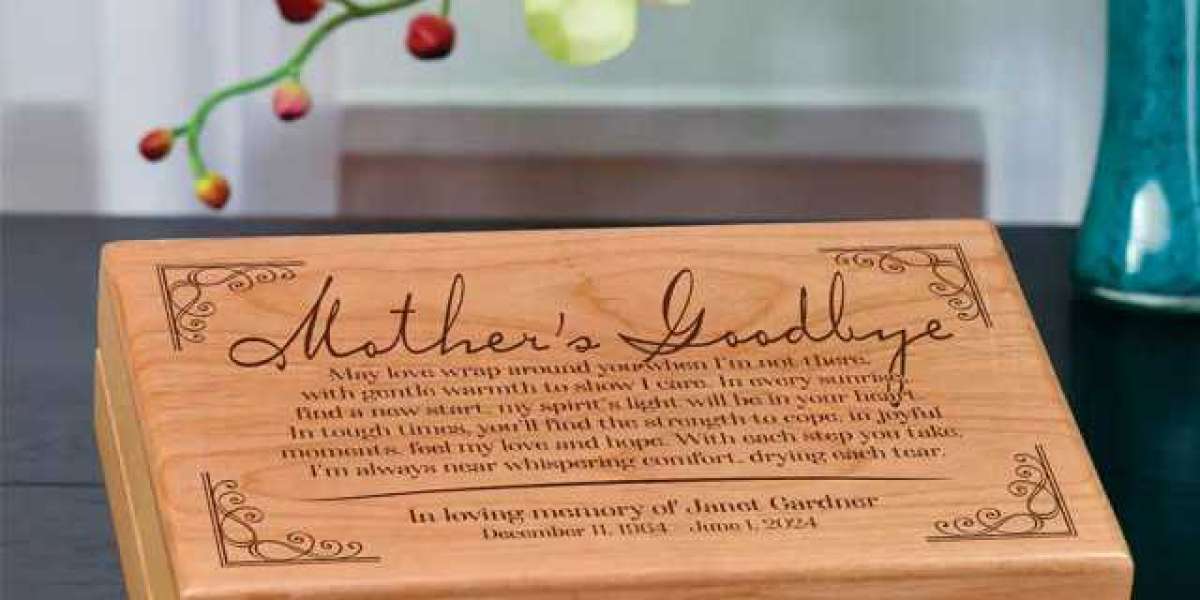 Mother's Goodbye
May love wrap around you when I'm not there,
with gentle warmth to show I care. In every sunrise,
find a new start, my spirit's light will be in your heart.
In tough times, you'll find the strength to cope, in joyful
moments, feel my love and hope. With each step you take,
I'm always near whispering comfort, drying each tear.
In loving memory of Janet Gardner
December 11, 1964 June 1, 2024